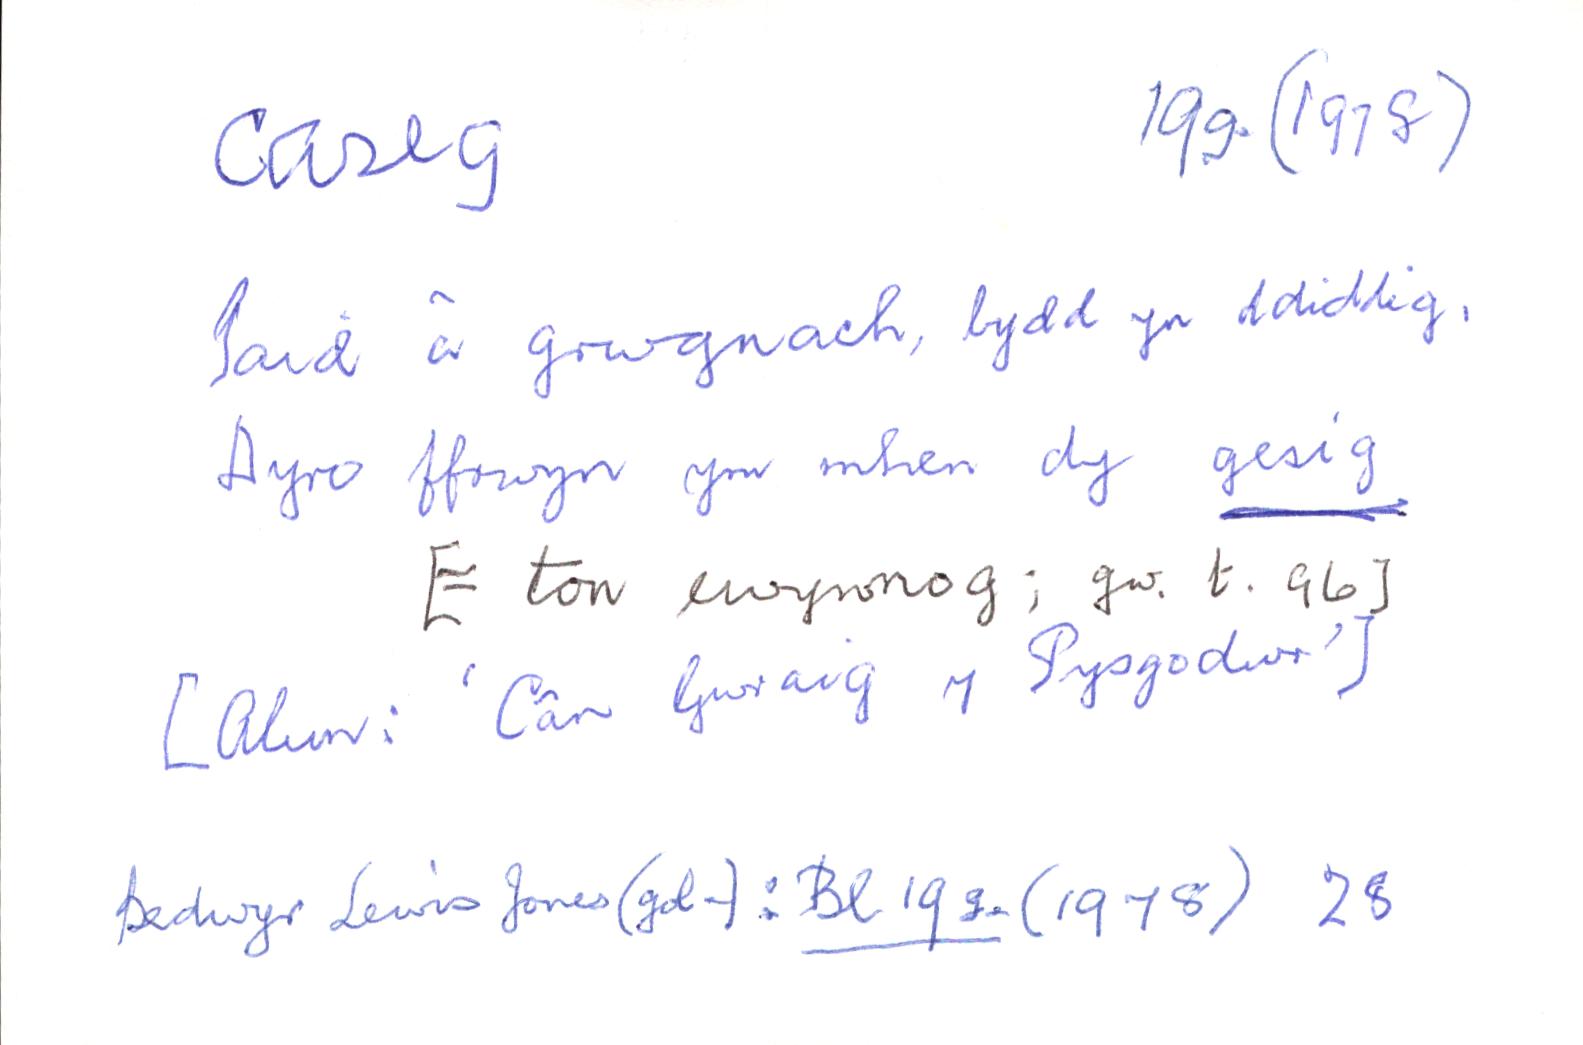 caseg 19g. (1978)
Paid â grwgnach, bydd yn ddiddig,
Dyro ffrwyn ym mhen dy gesig
[= ton ewynnog; gw. t. 96]
[Alun: 'Cân Gwraig y Pysgodwr']
Bedwyr Lewis Jones (gol.): Bl 19g. (1978) 28